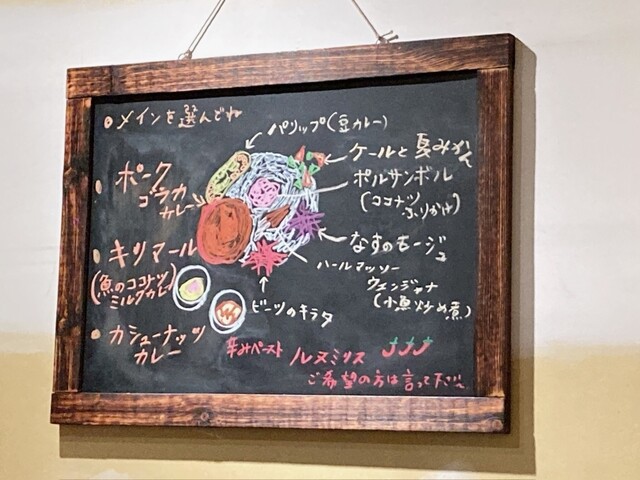 メインを選んでね
パリップ(豆カレー)
ケールと夏みかん
ポルサンボル
(ココナツ
ふりかけ)
なすのモージュ
ハールマッソー
ウェンジャナ
(小魚炒め煮)
ビーツのキラタ
ポーク
ゴラカ
カレー
キリマール
(魚のココナツ
ミルクカレー)
カシューナッツ
カレー
辛みペースト ルヌミリス
ご希望の方は言って下さい